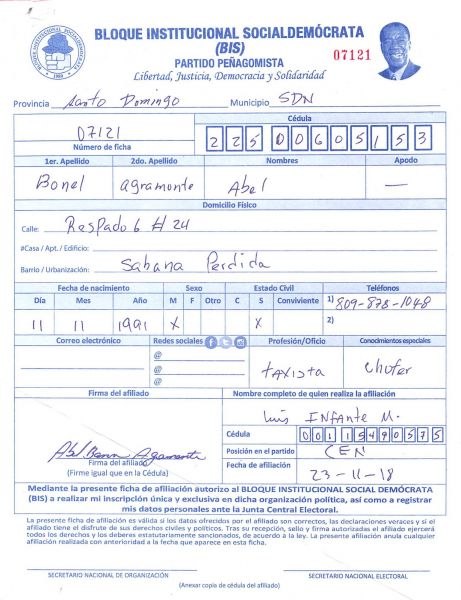 BLOQUE INSTITUCIONAL SOCIALDEMÓCRATA
(BIS)
PARTIDO PEÑAGOMISTA
Libertad, Justicia, Democracia y Solidaridad
07121
BLOQUE INSTITUCIONAL SOCIALDEMOCRATA
Provincia Santo Domingo Municipio SDN
07121
Número de ficha
Cédula
22500605153
1er. Apellido 2do. Apellido Nombres Apodo
Bonel Agramonte Abel —
Domicilio Físico
Calle: Respado 6 # 24
#Casa / Apt. / Edificio:
Barrio / Urbanización: Sabana Perdida
Fecha de nacimiento Sexo Estado Civil Teléfonos
Día Mes Año M F Otro C S Conviviente 1) 809-878-1048
11 11 1991 X X 2)
Correo electrónico Redes sociales Profesión/Oficio Conocimientos especiales
@
@
@
taxista chofer
Firma del afiliado Nombre completo de quien realiza la afiliación
Luis Infante M.
Cédula 00115490575
Posición en el partido CEN
Fecha de afiliación 23-11-18
Firma del afiliado
(Firme igual que en la Cédula)
Mediante la presente ficha de afiliación autorizo al BLOQUE INSTITUCIONAL SOCIAL DEMÓCRATA
(BIS) a realizar mi inscripción única y exclusiva en dicha organización política, así como a registrar
mis datos personales ante la Junta Central Electoral.
La presente ficha de afiliación es válida si los datos ofrecidos por el afiliado son correctos, las declaraciones veraces y si el
afiliado tiene el disfrute de sus derechos civiles y políticos. Tras su recepción, sello y firma autorizadas el afiliado ejercerá
todos los derechos y los deberes estatutariamente sancionados, de acuerdo a la ley. La presente afiliación anula cualquier
afiliación realizada con anterioridad a la fecha que aparece en esta ficha.
SECRETARIO NACIONAL DE ORGANIZACIÓN SECRETARIO NACIONAL ELECTORAL
(Anexar copia de cédula del afiliado)